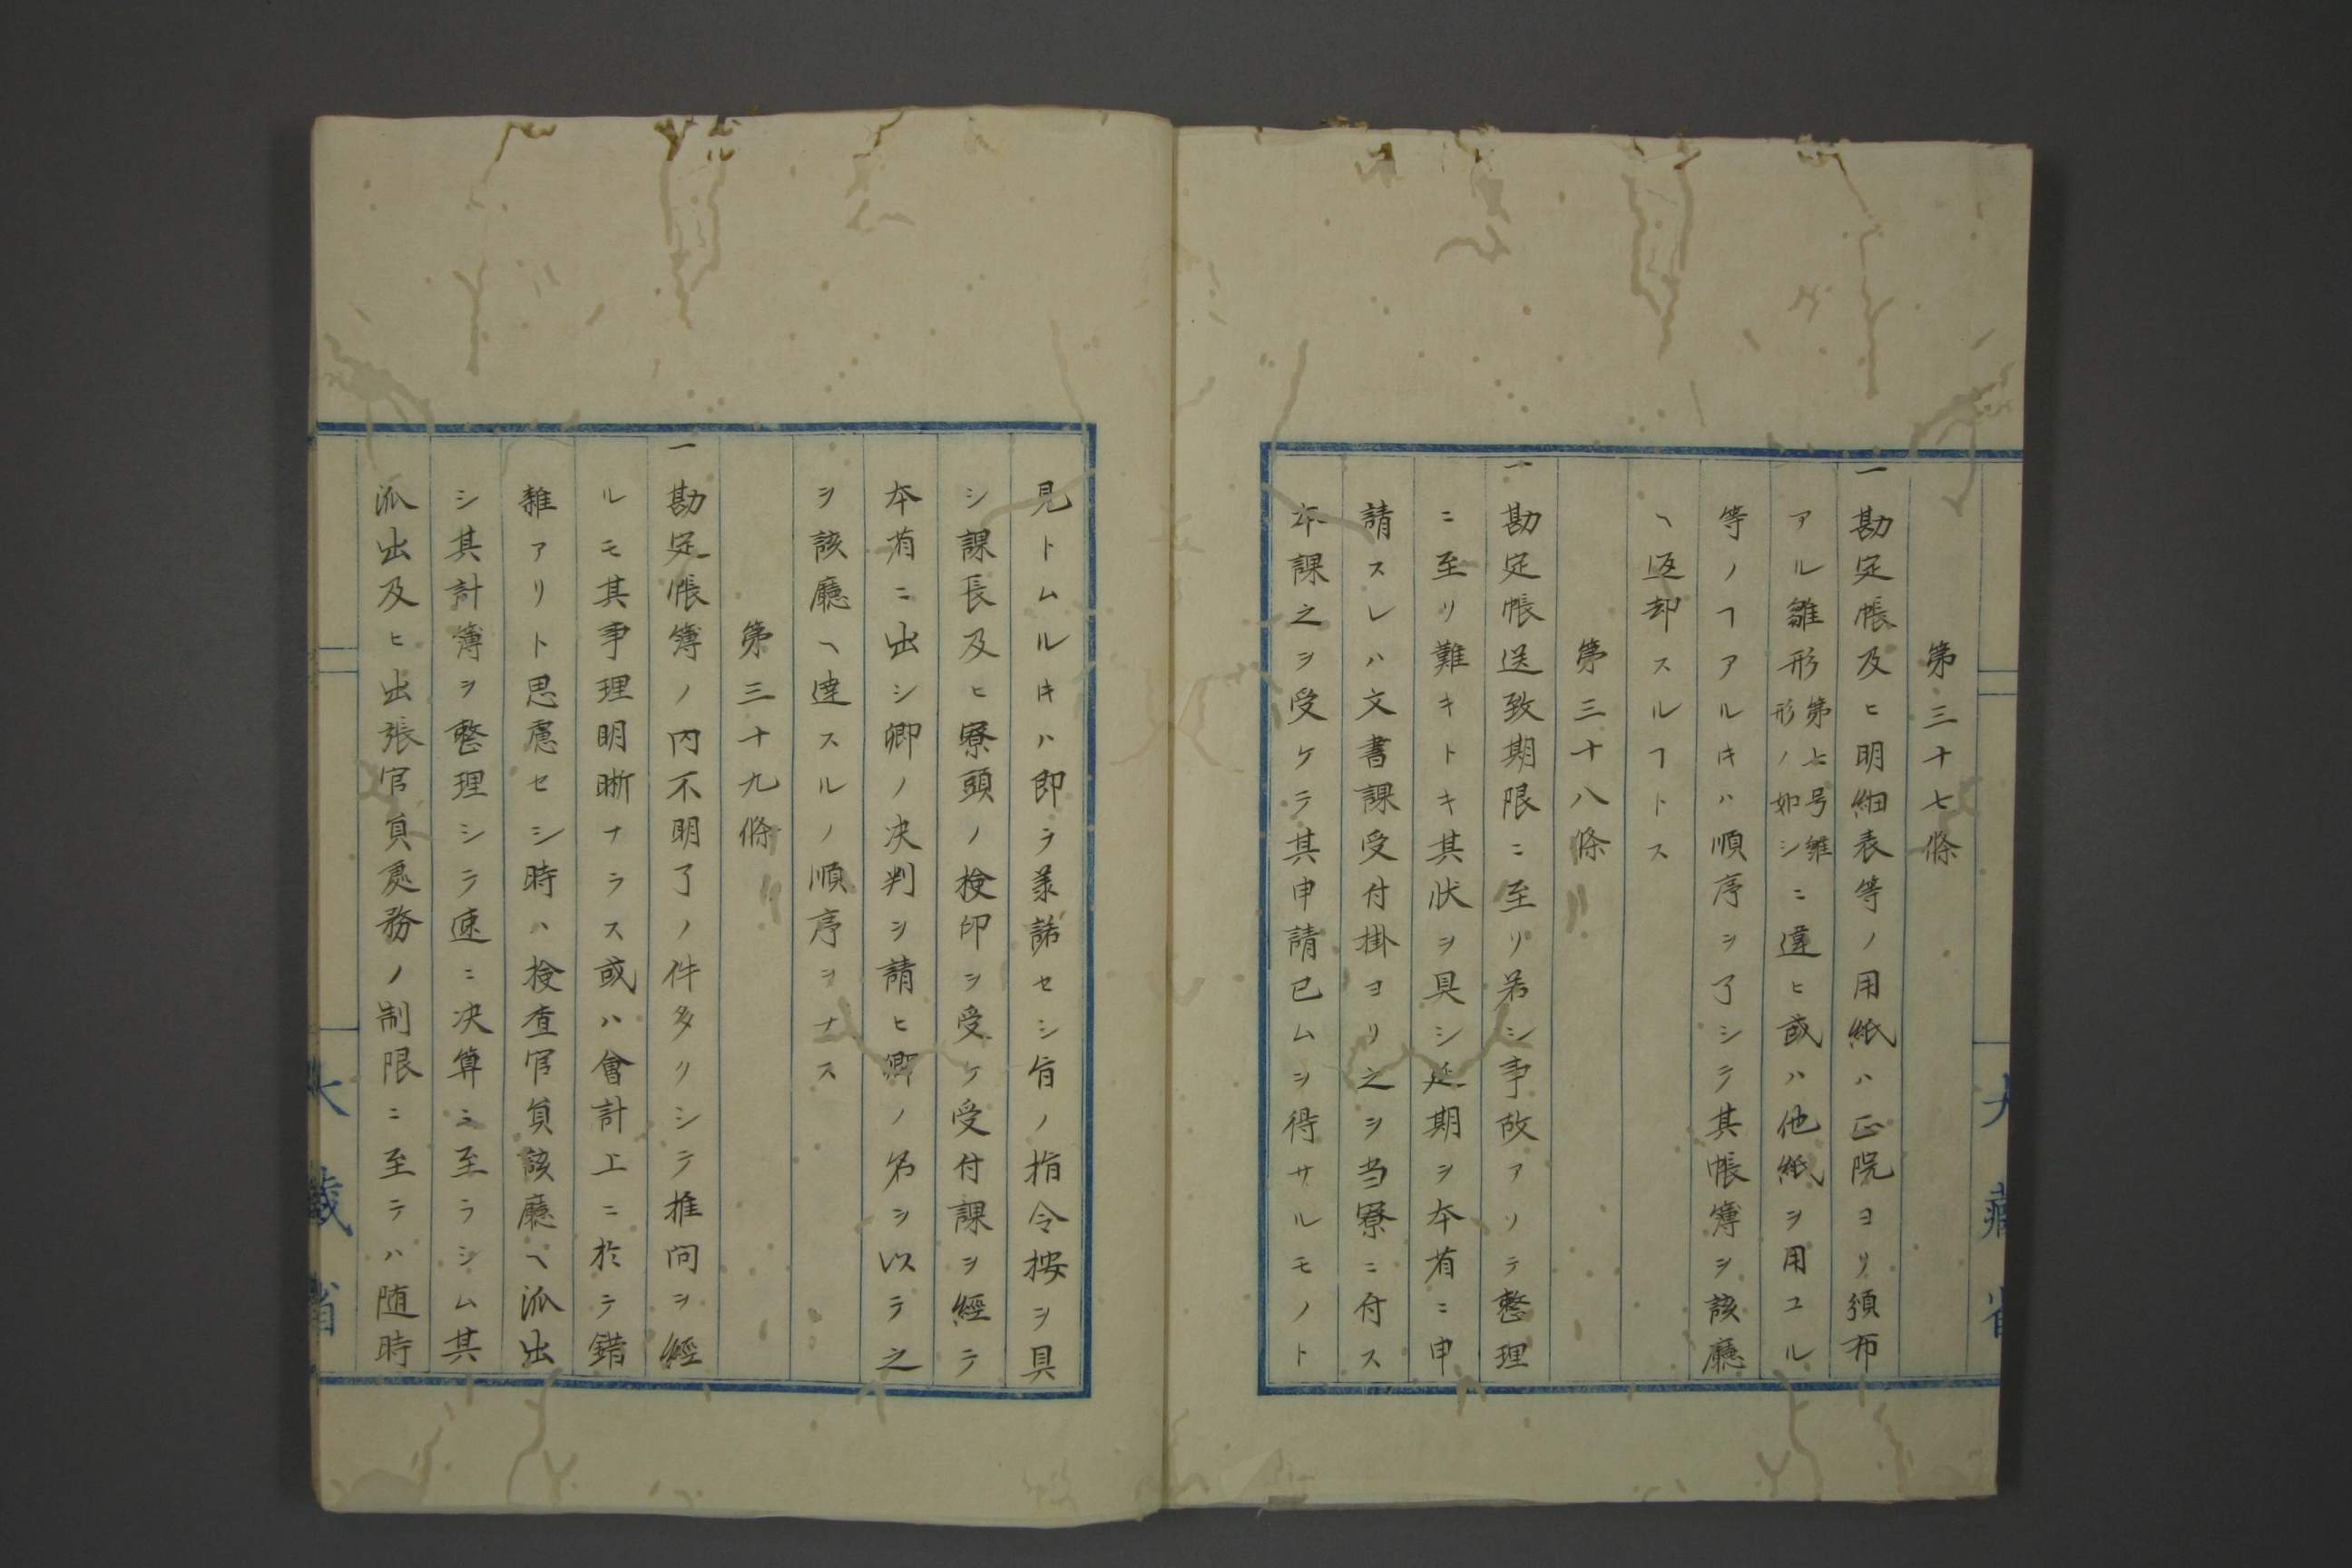 第三十七條
一勘定帳及ヒ明細表等ノ用紙ハ正院ヨリ頒布
アル雛形第七号雛形ノ如シニ違ヒ或ハ他紙ヲ用ユル
等ノヿアルキハ順序ヲ了シテ其帳簿ヲ該廳
ヘ返却スルヿトス
第三十八條
一勘定帳送致期限ニ至リ若シ事故アリテ整理
ニ至リ難キトキ其状ヲ具シ延期ヲ本省ニ申
請スレハ文書課受付掛ヨリ之ヲ当寮ニ付ス
本課之ヲ受ケテ其申請已ムヲ得サルモノト
見トムルキハ即ラ羕諾セシ旨ノ指令按ヲ具
シ課長及ヒ寮頭ノ検印ヲ受ケ受付課ヲ經テ
本省ニ出シ卿ノ决判ヲ請ヒ卿ノ名ヲ以テ之
ヲ該廳ヘ達スルノ順序ヲナス
第三十九條
一勘定帳簿ノ内不明了ノ件多クシテ推問ヲ經
ルモ其事理明晰ナラス或ハ會計上ニ於テ錯
雜アリト思慮セシ時ハ検查官員該廳ヘ派出
シ其計簿ヲ整理シテ速ニ决算ニ至ラシム其
派出及ヒ出張官員處務ノ制限ニ至テハ随時
大藏省
大藏省